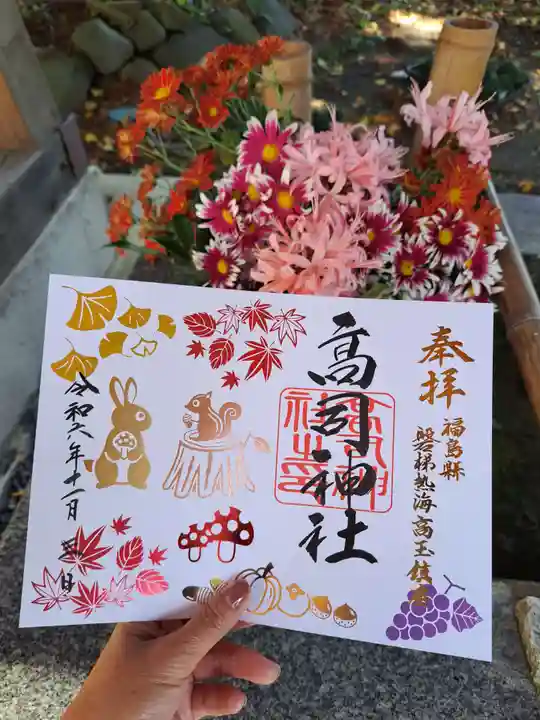 奉拝
福島縣
磐梯熱海高玉鎮座
高司神社
令和六年十一月 日